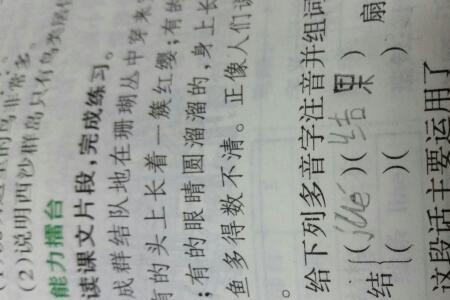 (2)说明西沙群岛只有鱼类
非常多。
能力擂台
读课文片段,完成练习。
成群结队地在珊瑚丛中穿来
有的头上长着一簇红缨;有的
;有的眼睛圆溜溜的,身上长
鱼多得数不清。正像人们说
给下列多音字注音并组词
结{(jié)(结果) 扇
( )( )
这段话主要运用了